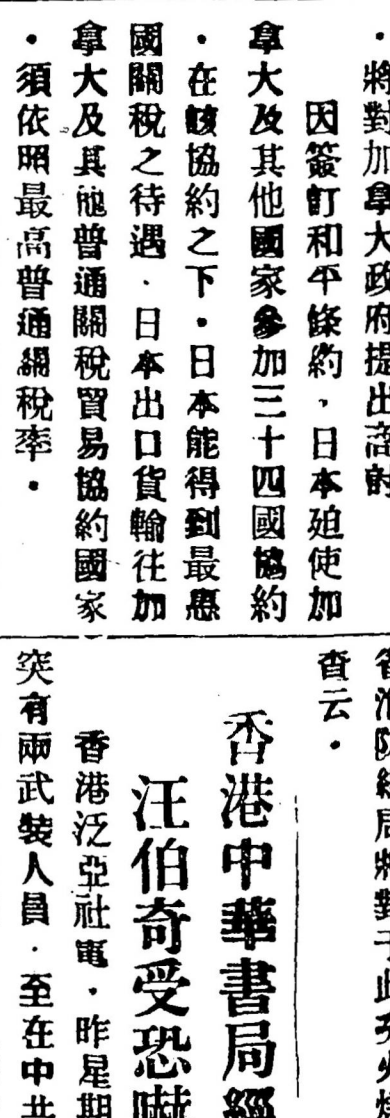 ・將對加拿大政府提出商討
因簽訂和平條約，日本廹使加
拿大及其他國家參加三十四國協約
・在該協約之下・日本能得到最惠
國關稅之待遇・日本出口貨輸往加
拿大及其他普通關稅貿易協約國家
・須依照最高普通關稅率・
查云・
香港中華書局經
汪伯奇受恐嚇
香港泛亞社電・昨星期
突有兩武裝人員・至在中共